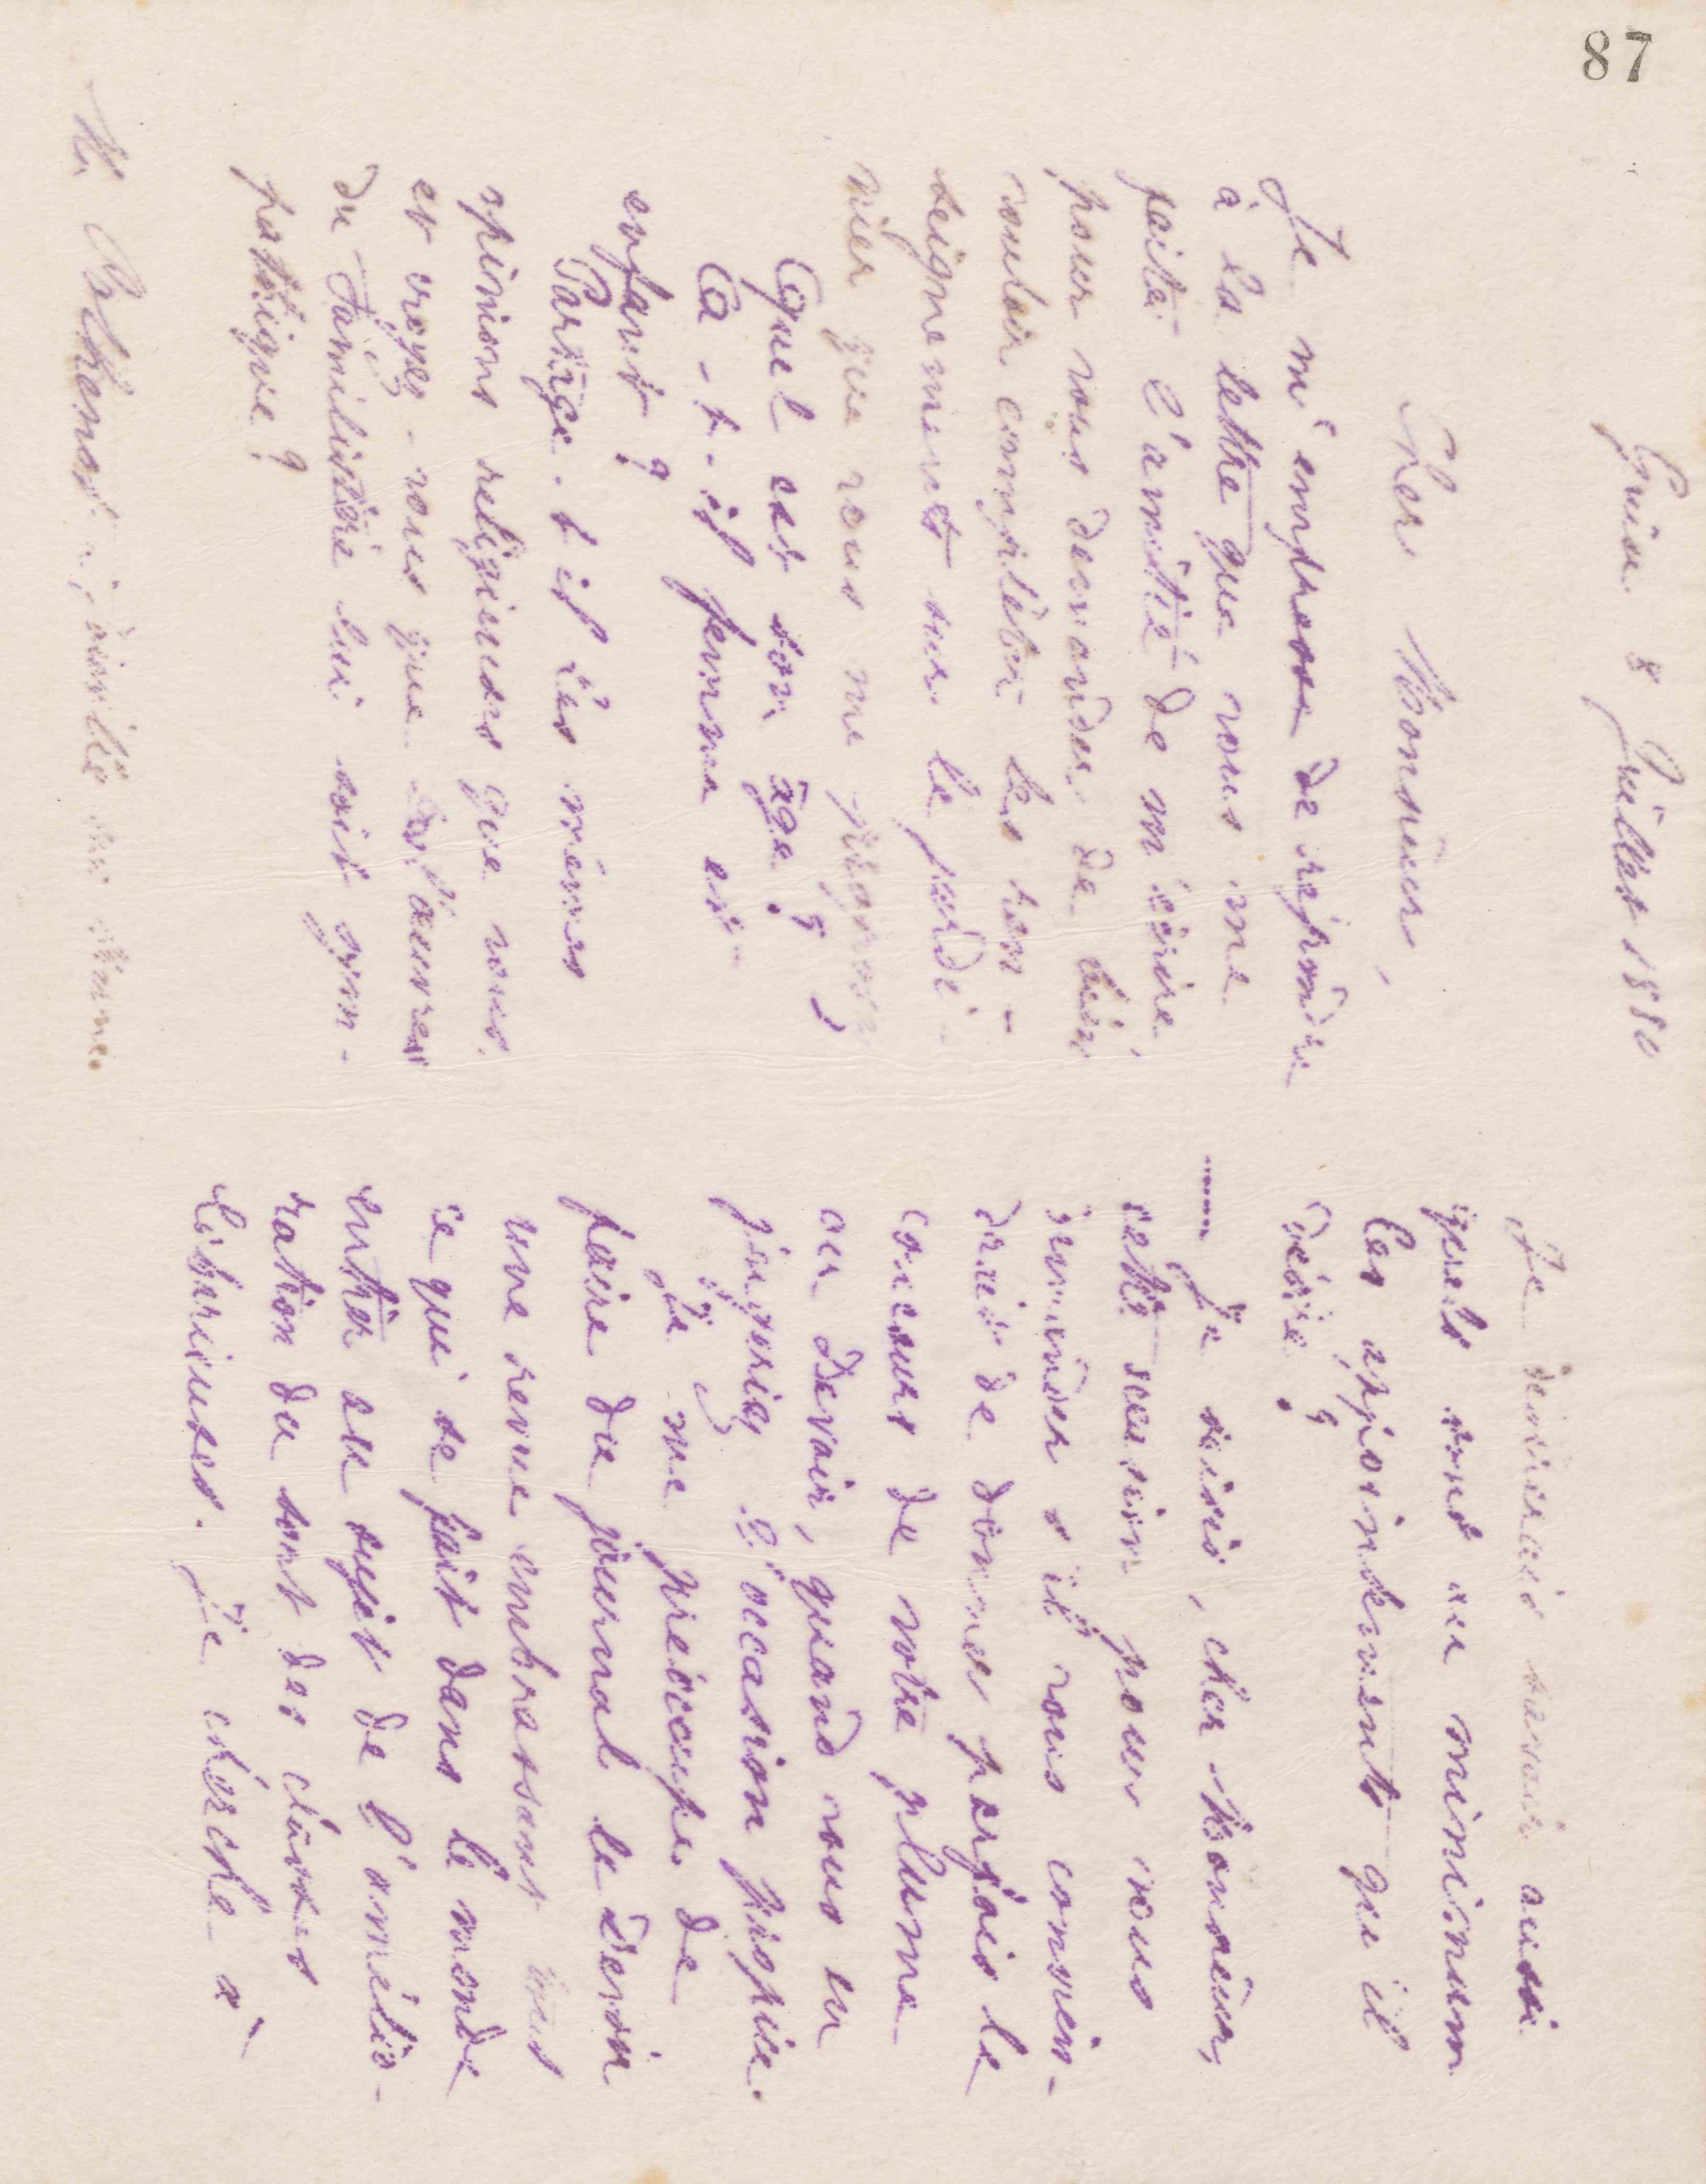 87
Guise 8 Juillet 1880
Cher Monsieur,
Je m'empresse de répondre
à la lettre que vous me
faites l'amitié de m'écrire,
pour vous demander de bien
vouloir compléter les ren-
seignements sur le jardi-
nier que vous me proposez
Quel est son âge ?
A-t-il femme et
enfants ?
Partage-t-il les mêmes
opinions religieuses que vous,
et croyez-vous que l'œuvre
du Familistère lui soit sym-
pathique ?
Je désirerais savoir aussi
quels sont au minimum
les appointements qu'il
désire ?
Je saisis, cher Monsieur,
cette occasion pour vous
demander s'il vous convien-
drait de donner parfois le
concours de votre plume
au Devoir, quand vous en
jugeriez l'occasion propice.
Je me préoccupe de
faire du journal le Devoir
une revue embrassant tout
ce qui se fait dans le monde
entier au sujet de l'amélio-
ration du sort des classes
laborieuses. Je cherche à